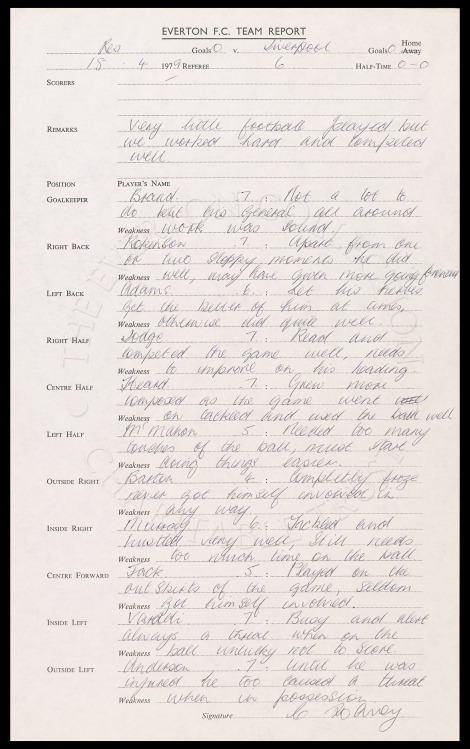 EVERTON F.C. TEAM REPORT
Res Goals 0 v. Liverpool Goals 0 Home Away
18 . 4 1979 REFEREE 6 HALF-TIME 0-0
SCORERS —
REMARKS Very little football played but
we worked hard and competed
well.
POSITION PLAYER'S NAME
GOALKEEPER Brand. 7 : Not a lot to
do but his general all around
Weakness work was sound.
RIGHT BACK Robinson 7 : Apart from one
or two sloppy moments he did
Weakness well, may have given more going forward
LEFT BACK Adams 6 : Let his
get the better of him at times,
Weakness otherwise did quite well.
RIGHT HALF Hodge 7 : Read and
competed the game well, needs
Weakness to improve on his heading.
CENTRE HALF Heard 7 : Grew more
composed as the game went
Weakness on tackled and used the ball well
LEFT HALF McMahon 5 : Needed too many
touches of the ball, must start
Weakness doing things easier.
OUTSIDE RIGHT Barton 4 : Completely froze
never got himself involved in
Weakness any way.
INSIDE RIGHT Murray 6 : Tackled and
hustled very well. Still needs
Weakness too much time on the ball
CENTRE FORWARD Jack 5 : Played on the
outskirts of the game, seldom
Weakness got himself involved.
INSIDE LEFT 7 : Busy and alert
always a threat when on the
Weakness ball unlucky not to score.
OUTSIDE LEFT Anderson 7 : Until he was
injured he too caused a threat
Weakness when in possession
Signature